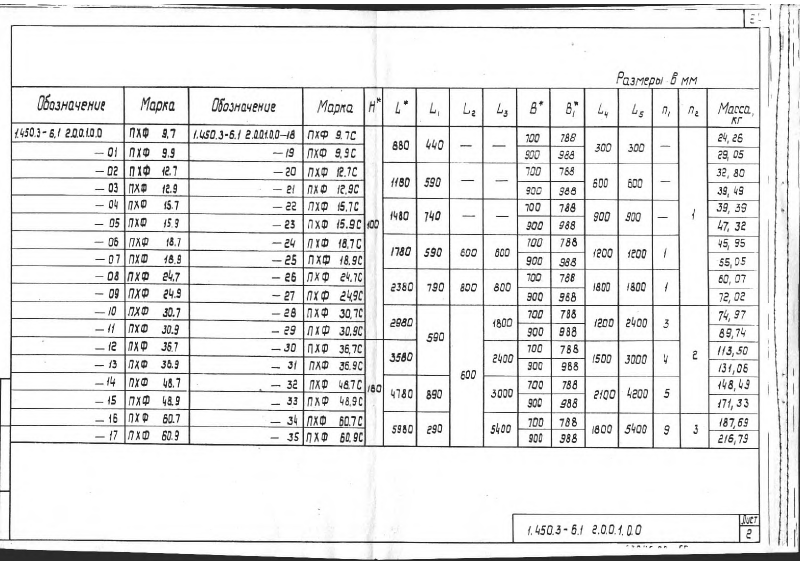 Размеры в мм
Обозначение Марка Обозначение Марка H* L* L₁ L₂ L₃ B* B₁* L₄ L₅ n₁ n₂ Масса, кг
1.450.3-6.1 2.0.0.1.0.0 ПХФ 9.7 1.450.3-6.1 2.0.0.1.0.0-18 ПХФ 9.7С 100 880 440 — — 700 788 300 300 — 1 24,26
— 01 ПХФ 9.9 — 19 ПХФ 9.9С 900 988 29,05
— 02 ПХФ 12.7 — 20 ПХФ 12.7С 1180 590 — — 700 788 600 600 — 32,80
— 03 ПХФ 12.9 — 21 ПХФ 12.9С 900 988 39,49
— 04 ПХФ 15.7 — 22 ПХФ 15.7С 1480 740 — — 700 788 900 900 — 39,39
— 05 ПХФ 15.9 — 23 ПХФ 15.9С 900 988 47,32
— 06 ПХФ 18.7 — 24 ПХФ 18.7С 1780 590 600 600 700 788 1200 1200 1 45,95
— 07 ПХФ 18.9 — 25 ПХФ 18.9С 900 988 55,05
— 08 ПХФ 24.7 — 26 ПХФ 24.7С 2380 790 800 800 700 788 1800 1800 1 60,07
— 09 ПХФ 24.9 — 27 ПХФ 24.9С 900 988 72,02
— 10 ПХФ 30.7 — 28 ПХФ 30.7С 2980 590 600 1800 700 788 1200 2400 3 2 74,97
— 11 ПХФ 30.9 — 29 ПХФ 30.9С 900 988 89,74
— 12 ПХФ 36.7 — 30 ПХФ 36.7С 180 3580 2400 700 788 1500 3000 4 113,50
— 13 ПХФ 36.9 — 31 ПХФ 36.9С 900 988 131,06
— 14 ПХФ 48.7 — 32 ПХФ 48.7С 4780 890 3000 700 788 2100 4200 5 148,49
— 15 ПХФ 48.9 — 33 ПХФ 48.9С 900 988 171,33
— 16 ПХФ 60.7 — 34 ПХФ 60.7С 5980 290 5400 700 788 1800 5400 9 3 187,69
— 17 ПХФ 60.9 — 35 ПХФ 60.9С 900 988 216,79
1.450.3-6.1 2.0.0.1.0.0
Лист
2